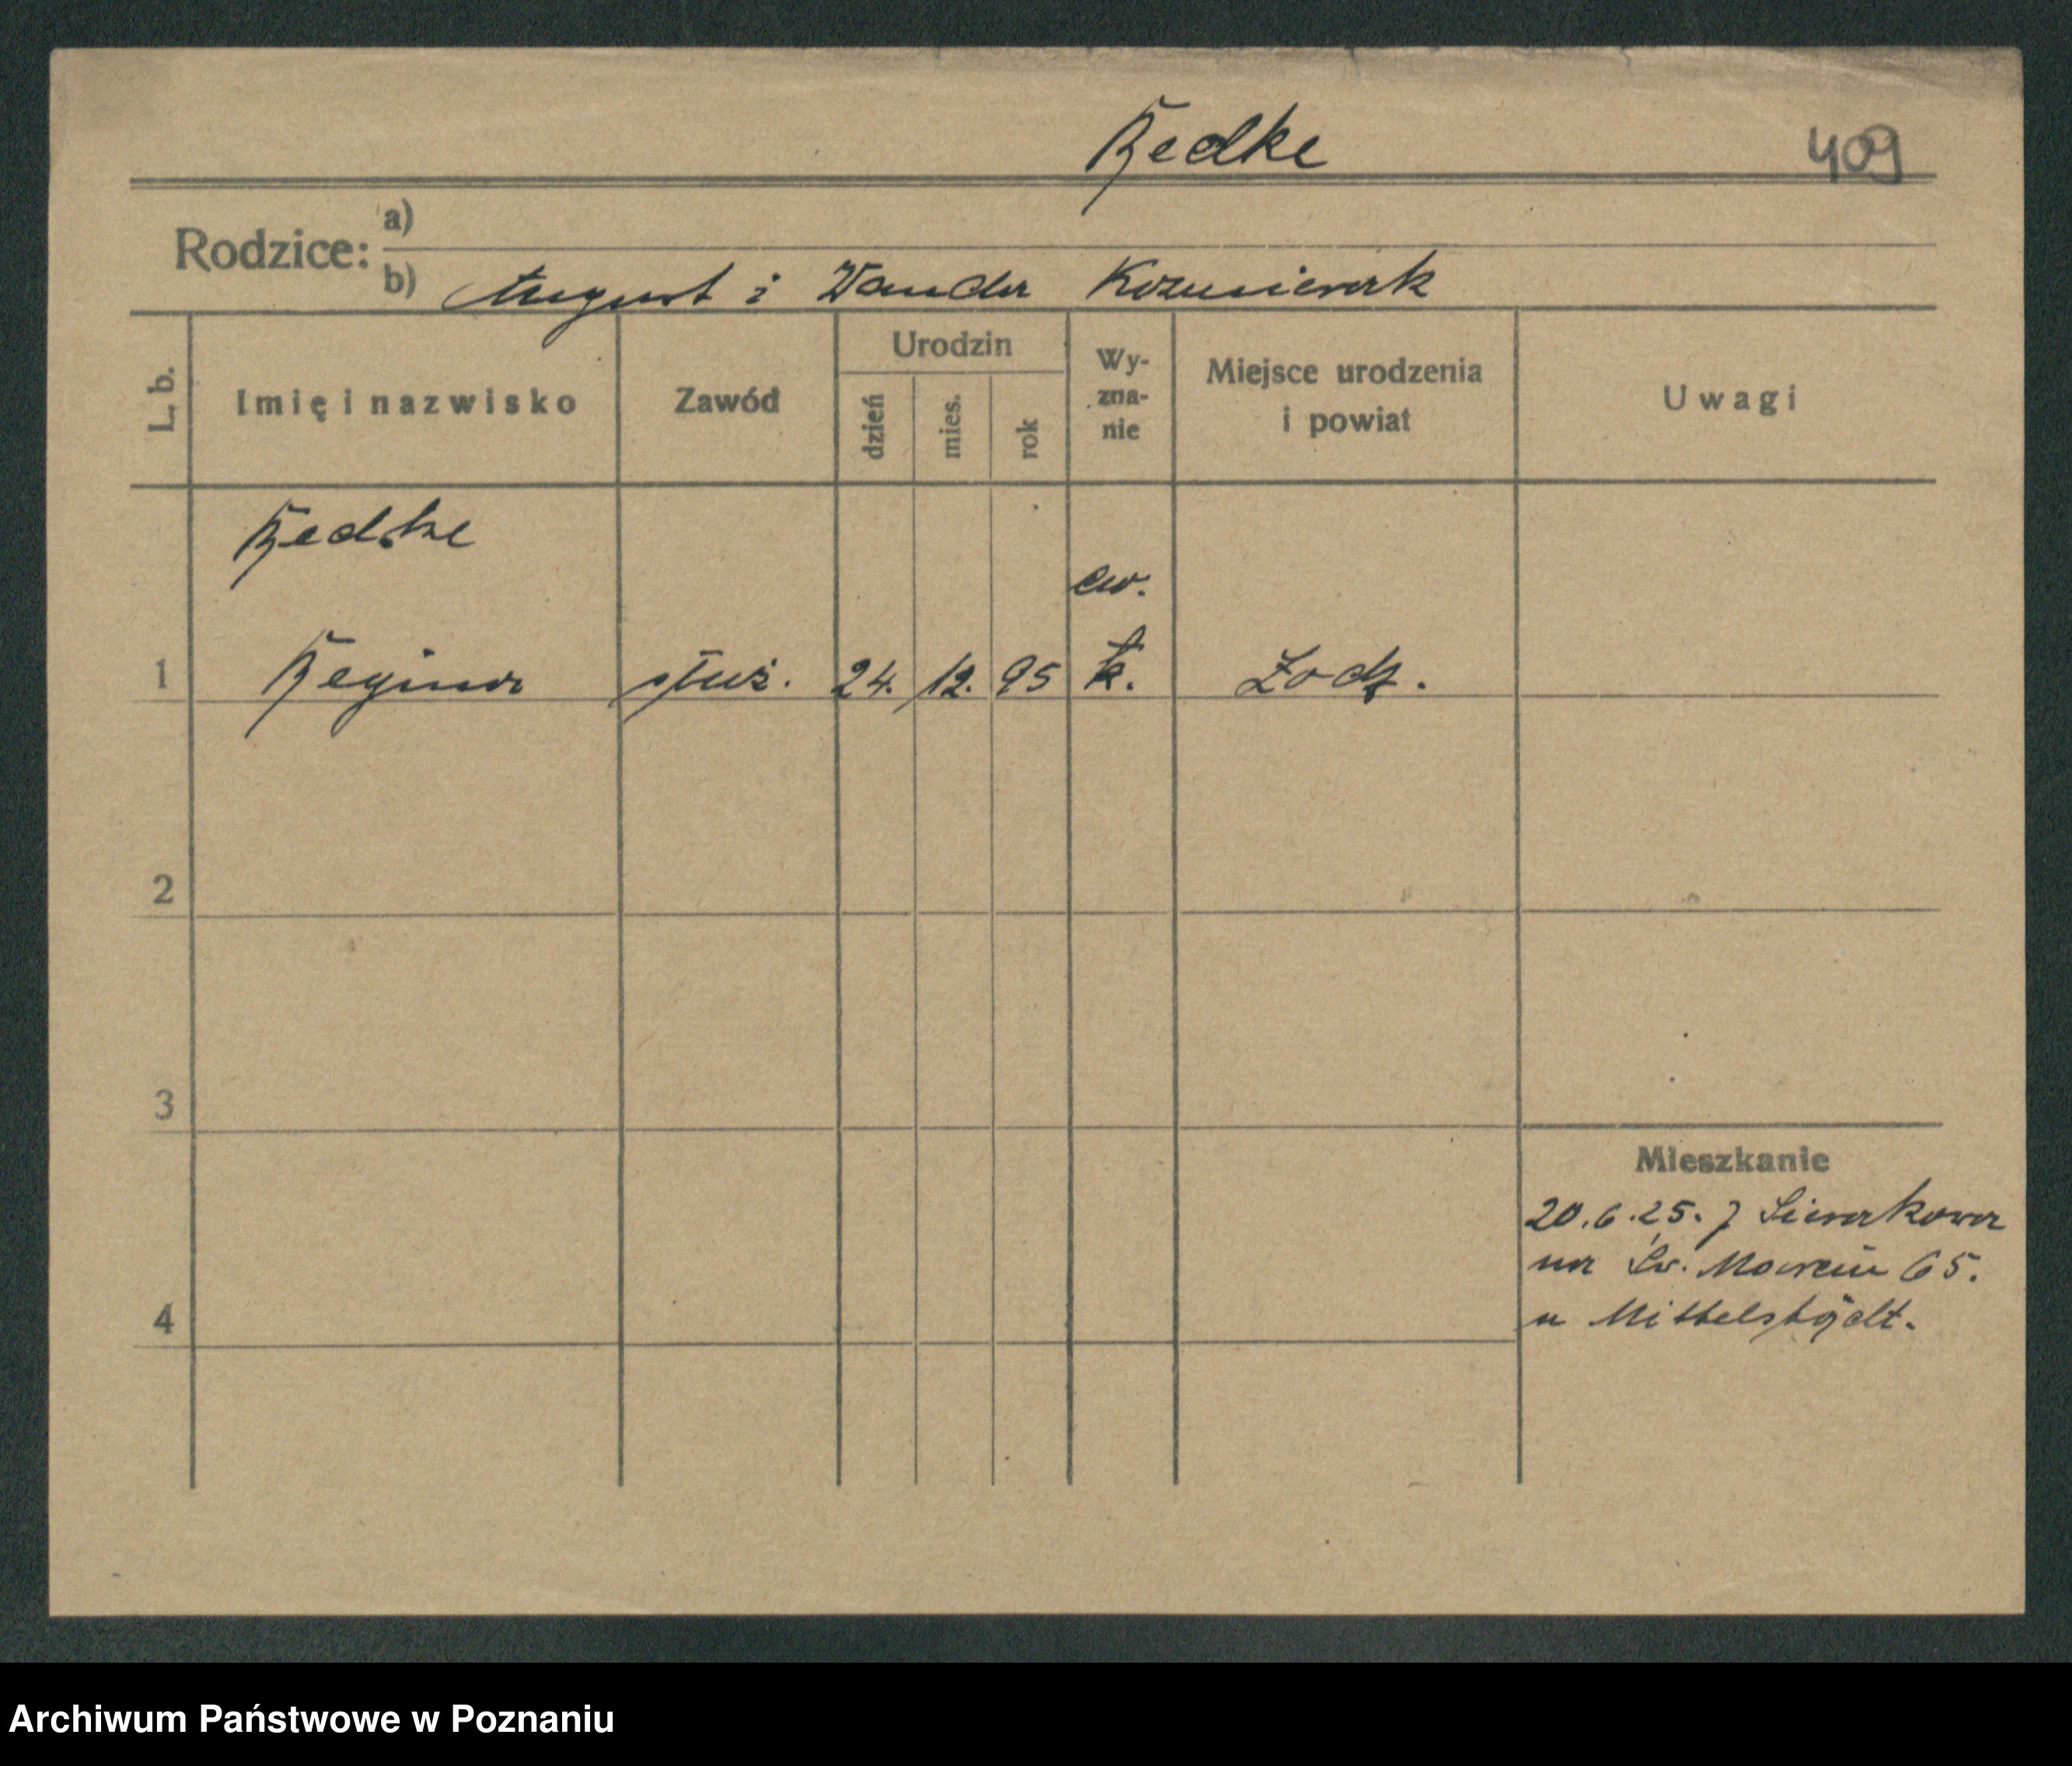 Redke 409
Rodzice: a)
b) August i Wanda Kozusierak
L. b.
Imię i nazwisko
Zawód
Urodzin
dzień
mies.
rok
Wy-
zna-
nie
Miejsce urodzenia
i powiat
Uwagi
Redke
ew.
1 Regina służ. 24. 12. 95 k. Łodz.
2
3
4
Mieszkanie
20.6.25. z Sierakowa
na Św. Marcin 65.
u Mittelstädt.
Archiwum Państwowe w Poznaniu